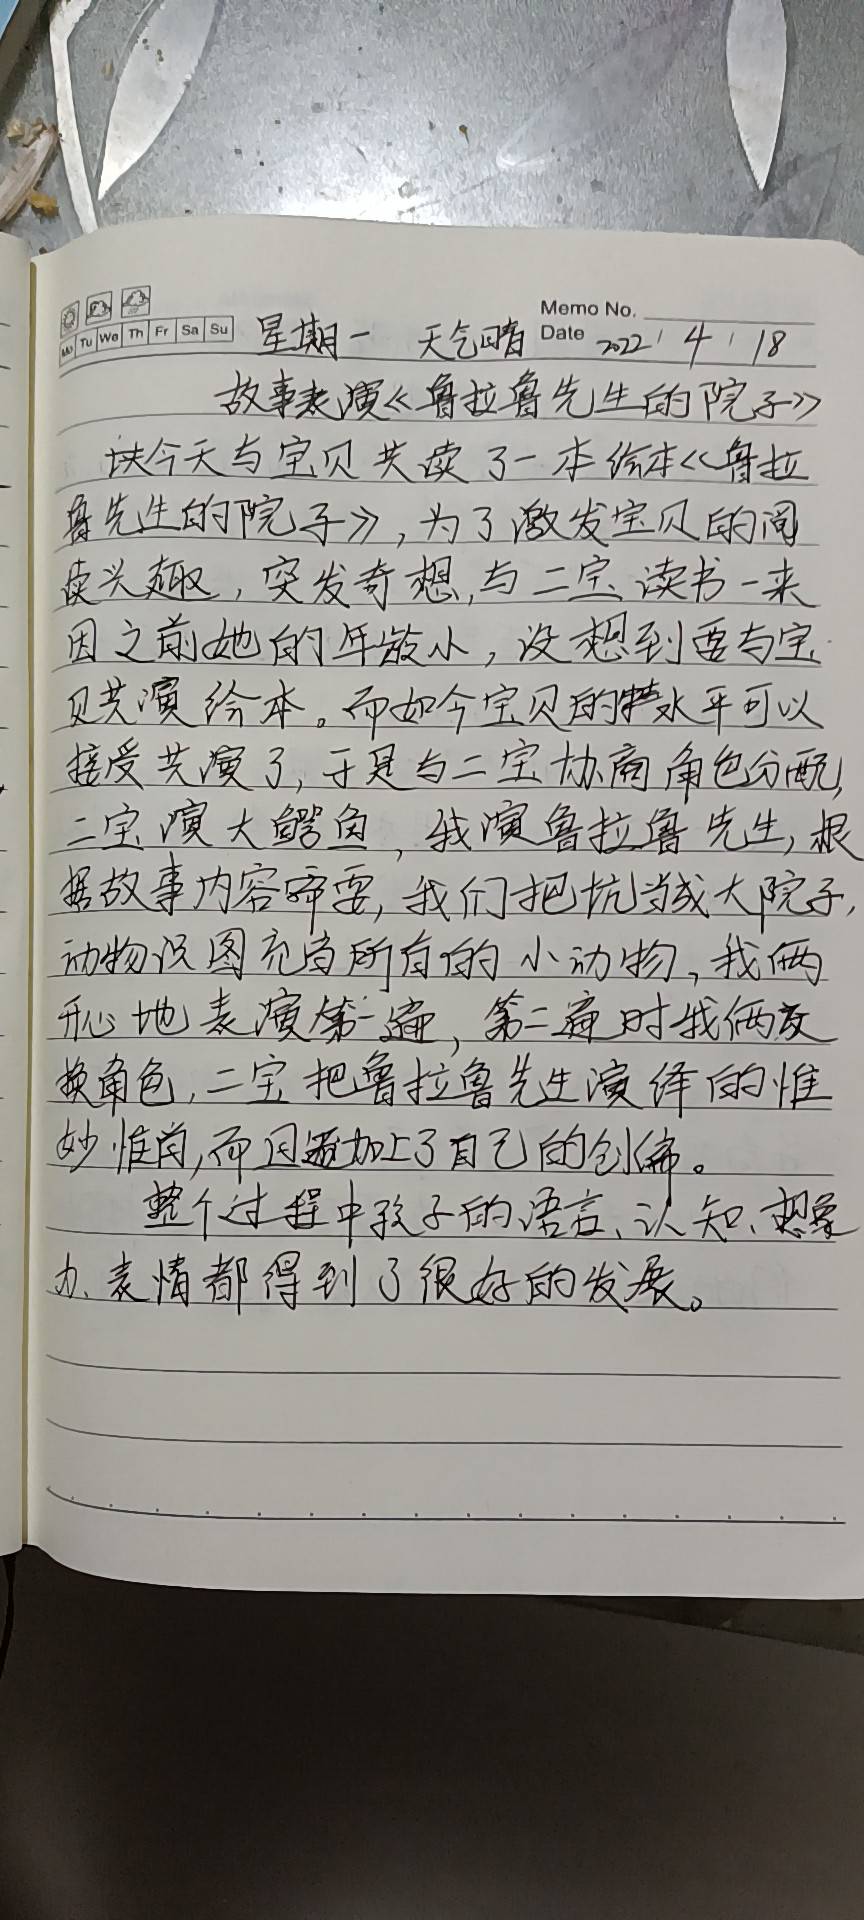 Memo No.
Mo Tu We Th Fr Sa Su 星期一 天气晴 Date 2022 / 4 / 18
故事表演《鲁拉鲁先生的院子》
今天与宝贝共读了一本绘本《鲁拉
鲁先生的院子》,为了激发宝贝的阅
读兴趣,突发奇想,与二宝读书一来
因之前她的年龄小,没想到要与宝
贝共演绘本。而如今宝贝的水平可以
接受共演了,于是与二宝协商角色分配,
二宝演大鳄鱼,我演鲁拉鲁先生,根
据故事内容需要,我们把炕当成大院子,
动物识图充当所有的小动物,我俩
开心地表演第一遍,第二遍时我俩交
换角色,二宝把鲁拉鲁先生演绎的惟
妙惟肖,而且添加上了自己的创编。
整个过程中孩子的语言、认知、想象
力、表情都得到了很好的发展。